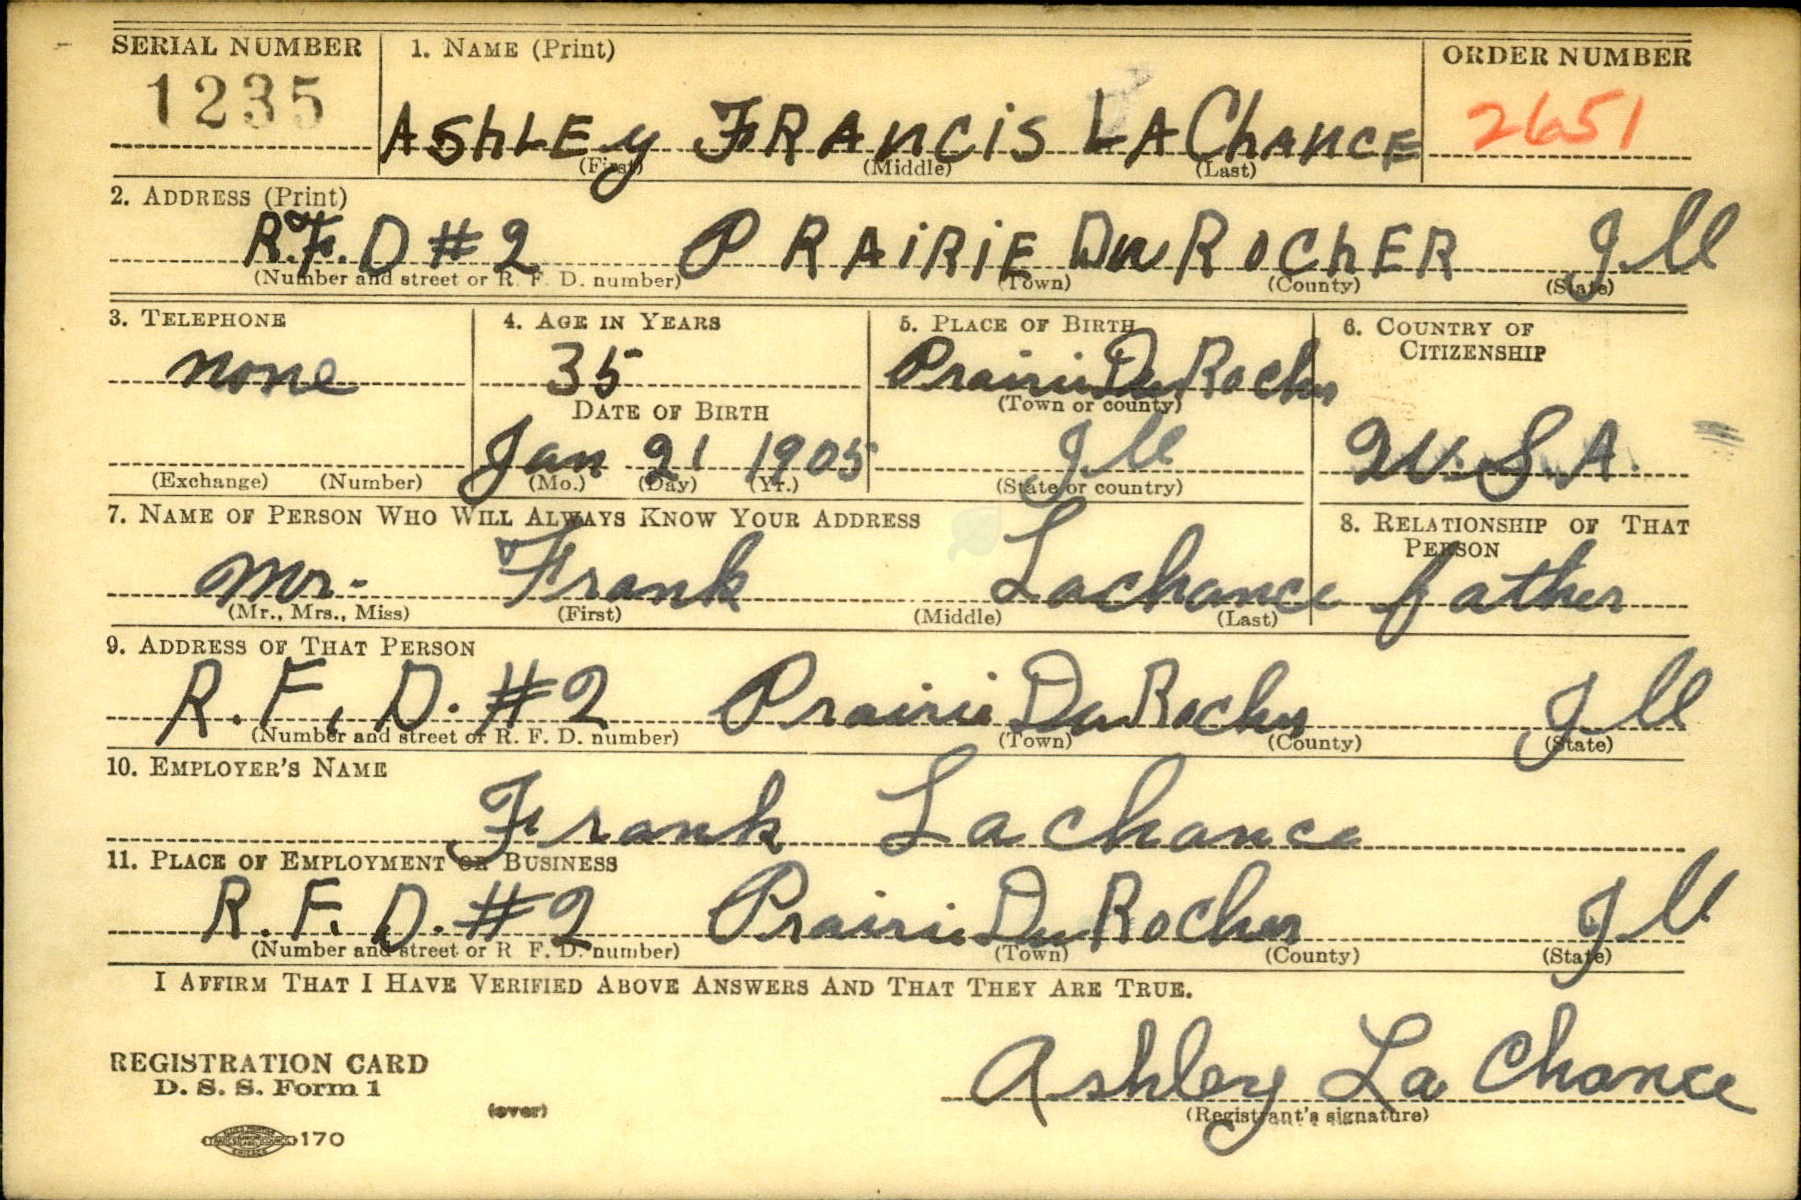 SERIAL NUMBER 1. NAME (Print) ORDER NUMBER
1235 ASHLEy FRANCiS LACHANCE 2651
(First) (Middle) (Last)
2. ADDRESS (Print)
R.F.D #2 PRAiRiE Du ROCHER Ill
(Number and street or R. F. D. number) (Town) (County) (State)
3. TELEPHONE 4. AGE IN YEARS 5. PLACE OF BIRTH 6. COUNTRY OF
CITIZENSHIP
none 35 Prairie Du Rocher
DATE OF BIRTH (Town or county)
Jan 21 1905 Ill U.S.A.
(Exchange) (Number) (Mo.) (Day) (Yr.) (State or country)
7. NAME OF PERSON WHO WILL ALWAYS KNOW YOUR ADDRESS 8. RELATIONSHIP OF THAT
PERSON
Mr. Frank Lachance father
(Mr., Mrs., Miss) (First) (Middle) (Last)
9. ADDRESS OF THAT PERSON
R.F.D. #2 Prairie Du Rocher Ill
(Number and street or R. F. D. number) (Town) (County) (State)
10. EMPLOYER'S NAME
Frank Lachance
11. PLACE OF EMPLOYMENT OR BUSINESS
R.F.D. #2 Prairie Du Rocher Ill
(Number and street or R F. D. number) (Town) (County) (State)
I AFFIRM THAT I HAVE VERIFIED ABOVE ANSWERS AND THAT THEY ARE TRUE.
REGISTRATION CARD
D. S. S. Form 1
Ashley La Chance
(over) (Registrant's signature)
170